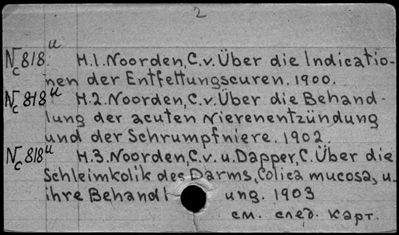 2
N/c 818 u H.1. Noorden, C.v. Über die Indicatio-
nen der Entfettungscuren. 1900.
N/c 818 u H.2. Noorden, C.v. Über die Behand-
lung der acuten Nierenentzündung
und der Schrumpfniere. 1902
N/c 818 u H.3. Noorden, C.v. u. Dapper, C. Über die
Schleimkolik des Darms, Colica mucosa, u.
ihre Behandlung. 1903
см. след. карт.